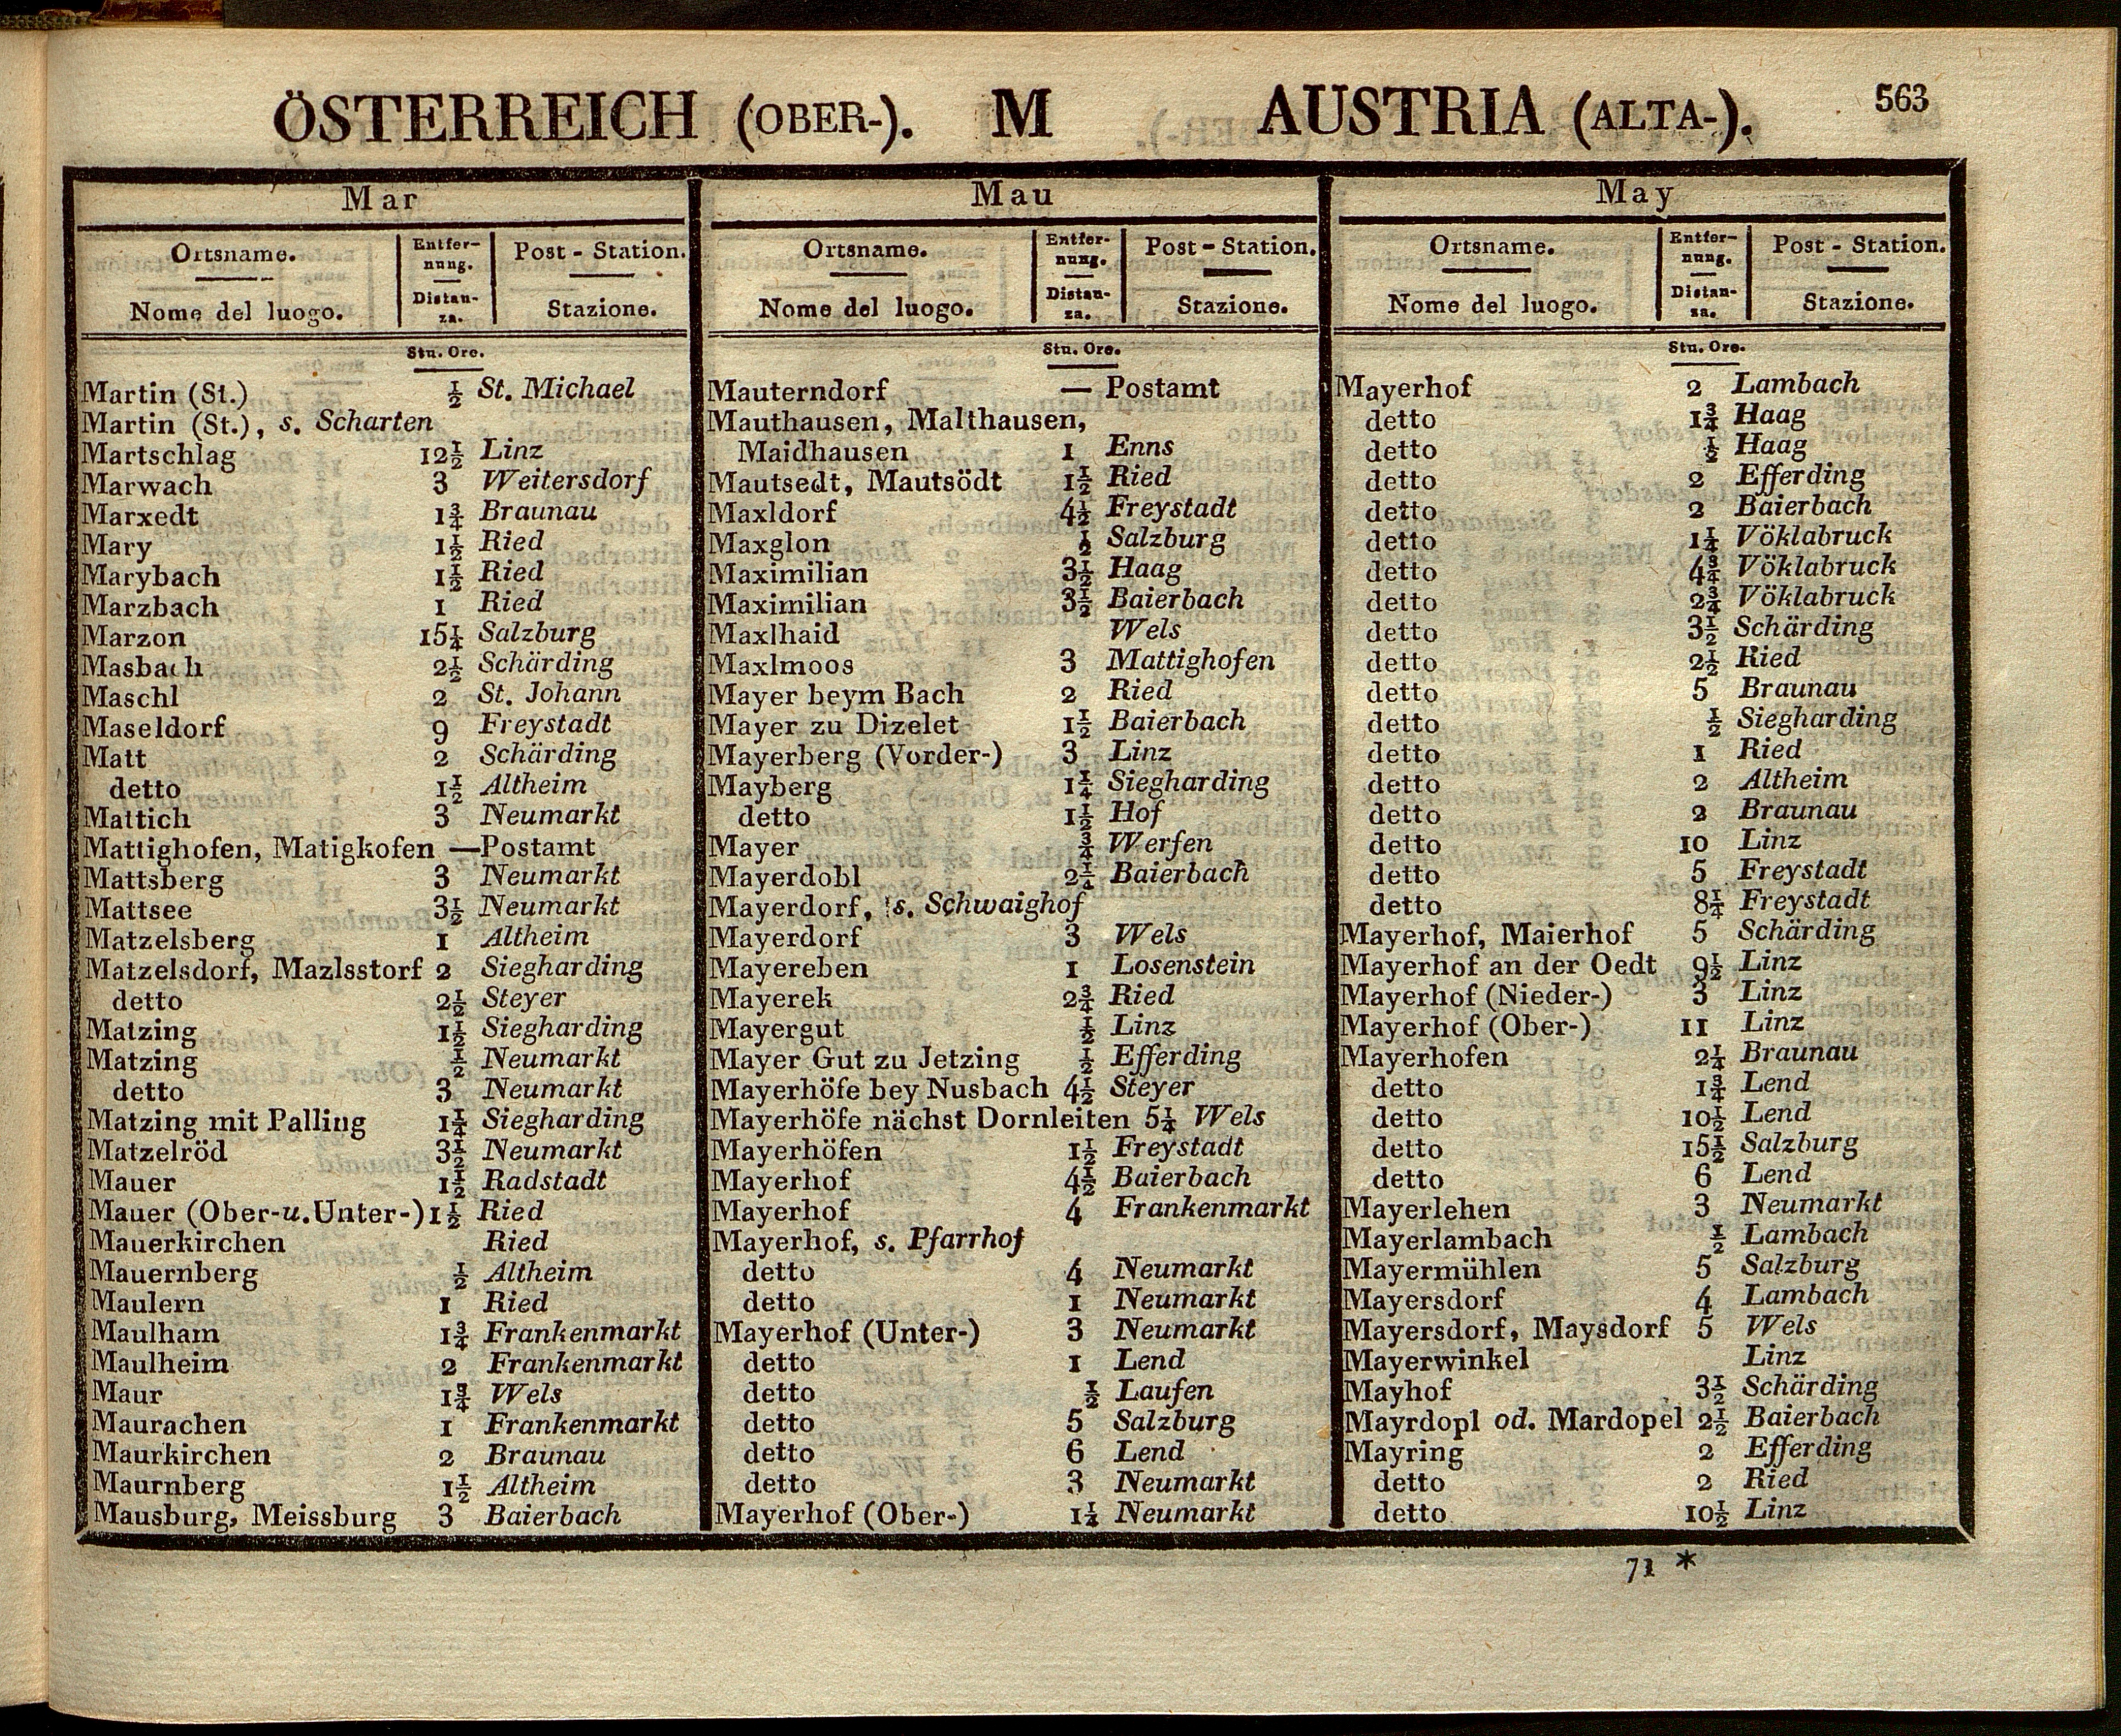 ÖSTERREICH (OBER-). M AUSTRIA (ALTA-). 563
Mar
Ortsname. Entfer-nung. Post - Station.
Nome del luogo. Distan-za. Stazione.
Stu. Ore.
Martin (St.) ½ St. Michael
Martin (St.), s. Scharten
Martschlag 12½ Linz
Marwach 3 Weitersdorf
Marxedt 1¾ Braunau
Mary 1½ Ried
Marybach 1½ Ried
Marzbach 1 Ried
Marzon 15¼ Salzburg
Masbach 2½ Schärding
Maschl 2 St. Johann
Maseldorf 9 Freystadt
Matt 2 Schärding
detto 1½ Altheim
Mattich 3 Neumarkt
Mattighofen, Matigkofen — Postamt
Mattsberg 3 Neumarkt
Mattsee 3½ Neumarkt
Matzelsberg 1 Altheim
Matzelsdorf, Mazlsstorf 2 Siegharding
detto 2½ Steyer
Matzing 1½ Siegharding
Matzing ½ Neumarkt
detto 3 Neumarkt
Matzing mit Palling 1¼ Siegharding
Matzelröd 3½ Neumarkt
Mauer 1½ Radstadt
Mauer (Ober-u.Unter-) 1½ Ried
Mauerkirchen Ried
Mauernberg ½ Altheim
Maulern 1 Ried
Maulham 1¾ Frankenmarkt
Maulheim 2 Frankenmarkt
Maur 1¾ Wels
Maurachen 1 Frankenmarkt
Maurkirchen 2 Braunau
Maurnberg 1½ Altheim
Mausburg, Meissburg 3 Baierbach
Mau
Ortsname. Entfer-nung. Post - Station.
Nome del luogo. Distan-za. Stazione.
Stu. Ore.
Mauterndorf — Postamt
Mauthausen, Malthausen,
Maidhausen 1 Enns
Mautsedt, Mautsödt 1½ Ried
Maxldorf 4½ Freystadt
Maxglon ½ Salzburg
Maximilian 3½ Haag
Maximilian 3½ Baierbach
Maxlhaid Wels
Maxlmoos 3 Mattighofen
Mayer beym Bach 2 Ried
Mayer zu Dizelet 1½ Baierbach
Mayerberg (Vorder-) 3 Linz
Mayberg 1¼ Siegharding
detto 1½ Hof
Mayer ¾ Werfen
Mayerdobl 2¼ Baierbach
Mayerdorf, s. Schwaighof
Mayerdorf 3 Wels
Mayereben 1 Losenstein
Mayerek 2¾ Ried
Mayergut ½ Linz
Mayer Gut zu Jetzing ½ Efferding
Mayerhöfe bey Nusbach 4½ Steyer
Mayerhöfe nächst Dornleiten 5¼ Wels
Mayerhöfen 1½ Freystadt
Mayerhof 4½ Baierbach
Mayerhof 4 Frankenmarkt
Mayerhof, s. Pfarrhof
detto 4 Neumarkt
detto 1 Neumarkt
Mayerhof (Unter-) 3 Neumarkt
detto 1 Lend
detto ½ Laufen
detto 5 Salzburg
detto 6 Lend
detto 3 Neumarkt
Mayerhof (Ober-) 1¼ Neumarkt
May
Ortsname. Entfer-nung. Post - Station.
Nome del luogo. Distan-za. Stazione.
Stu. Ore.
Mayerhof 2 Lambach
detto 1¾ Haag
detto ½ Haag
detto 2 Efferding
detto 2 Baierbach
detto 1¼ Vöklabruck
detto 4¾ Vöklabruck
detto 2¾ Vöklabruck
detto 3½ Schärding
detto 2½ Ried
detto 5 Braunau
detto ½ Siegharding
detto 1 Ried
detto 2 Altheim
detto 2 Braunau
detto 10 Linz
detto 5 Freystadt
detto 8¼ Freystadt
Mayerhof, Maierhof 5 Schärding
Mayerhof an der Oedt 9½ Linz
Mayerhof (Nieder-) 3 Linz
Mayerhof (Ober-) 11 Linz
Mayerhofen 2¼ Braunau
detto 1¾ Lend
detto 10½ Lend
detto 15½ Salzburg
detto 6 Lend
Mayerlehen 3 Neumarkt
Mayerlambach ½ Lambach
Mayermühlen 5 Salzburg
Mayersdorf 4 Lambach
Mayersdorf, Maysdorf 5 Wels
Mayerwinkel Linz
Mayhof 3½ Schärding
Mayrdopl od. Mardopel 2½ Baierbach
Mayring 2 Efferding
detto 2 Ried
detto 10½ Linz
71 *